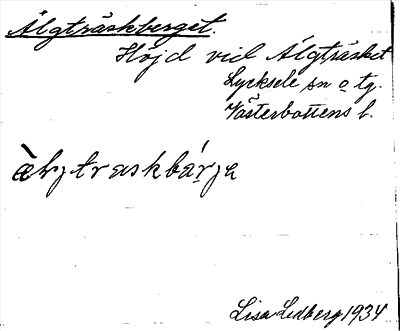 Älgträskberget.
Höjd vid Älgträsket
Lycksele sn o tg.
Västerbottens l.
Lisa Lidberg 1934